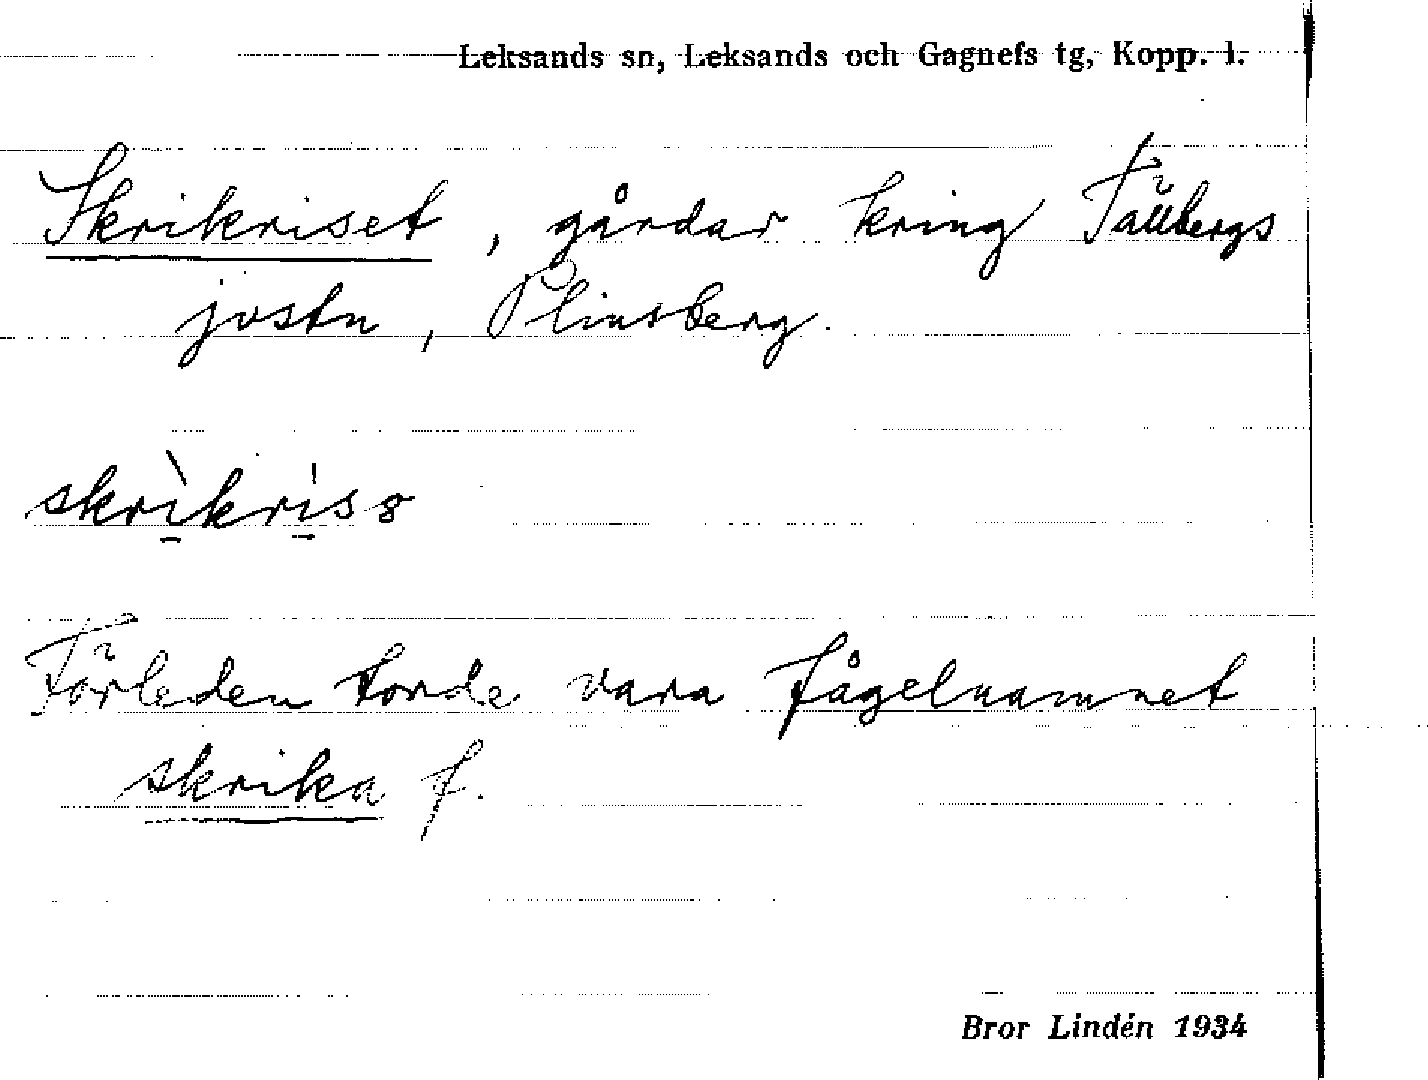 Leksands sn, Leksands och Gagnefs tg, Kopp. l.
Skrikriset, gårdar kring Tällbergs
jvstn, Plintsberg.
skrìkris
Förleden torde vara fågelnamnet
skrika f.
Bror Lindén 1934